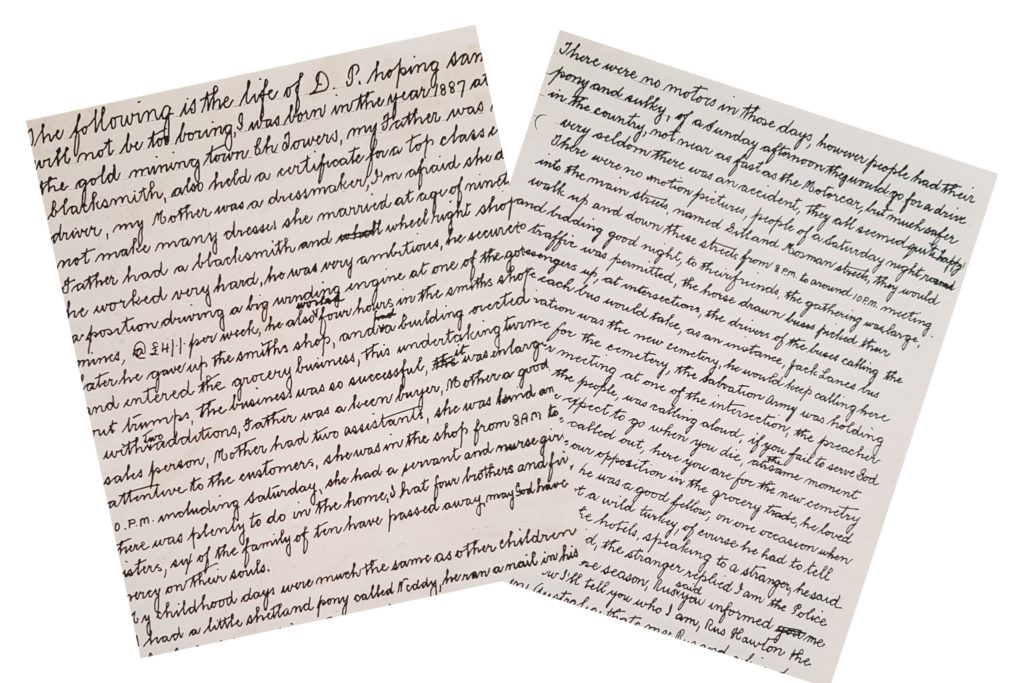 The following is the life of D. P. hoping sam
will not be too boring, I was born in the year 1887 at
the gold mining town Ch Towers, my Father was
blacksmith, also held a certificate for a top class e
driver, my Mother was a dressmaker, I'm afraid she d
not make many dresses she married at age of ninet
Father had a blacksmith and wheel right shop
he worked very hard, he was very ambitious, he secure
a position driving a big winding ingine at one of the go
mines, @ £4/1/- per week, he also worked four hours in the smiths shop
later he gave up the smiths shop, and had a building erected
and entered the grocery business, this undertaking turn
out bumps, the business was so successful, it was enlarg
with two additions, Father was a keen buyer, Mother a good
sales person, Mother had two assistants, she was kind an
attentive to the customers, she was in the shop from 8AM to
0.P.M. including saturday, she had a servant and nurse girl
there was plenty to do in the home, I hat four brothers and fiv
isters, six of the family of ten have passed away, may God have
mercy on their souls.
y childhood days were much the same as other children
I had a little shetland pony called Neddy, he ran a nail in his
There were no motors in those days, however people had their
pony and sulky, of a Sunday afternoon they would go for a drive
in the country, not near as fast as the Motorcar, but much safer
very seldom there was an accident, they all seemed quite happy
There were no motion pictures, people of a Saturday night
into the main streets, named Gill and Mosman streets, they would
walk up and down these streets from 8 P.M. to around 10 P.M. meeting
and bidding good night, to their friends, the gathering was large,
o traffic was permitted, the horse drawn buses picked their
ssengers up, at intersections, the drivers of the buses calling the
each bus would take, as an instance, Jack Lanes bus
vation was the new cemetery, he would keep calling here
e for the cemetery, the salvation Army was holding
r meeting at one of the intersection, the preacher
the people, was calling aloud, if you fail to serve God
expect to go when you die, at the same moment
called out, here you are for the new cemetry
our opposition in the grocery trade, he loved
he was a good fellow, on one occasion when
t a wild turkey, of course he had to tell
te hotels, speaking to a stranger, he said
d, the stranger replied I am the Police
se season, Rus said you informed me
w I'll tell you who I am, Rus Hawton the